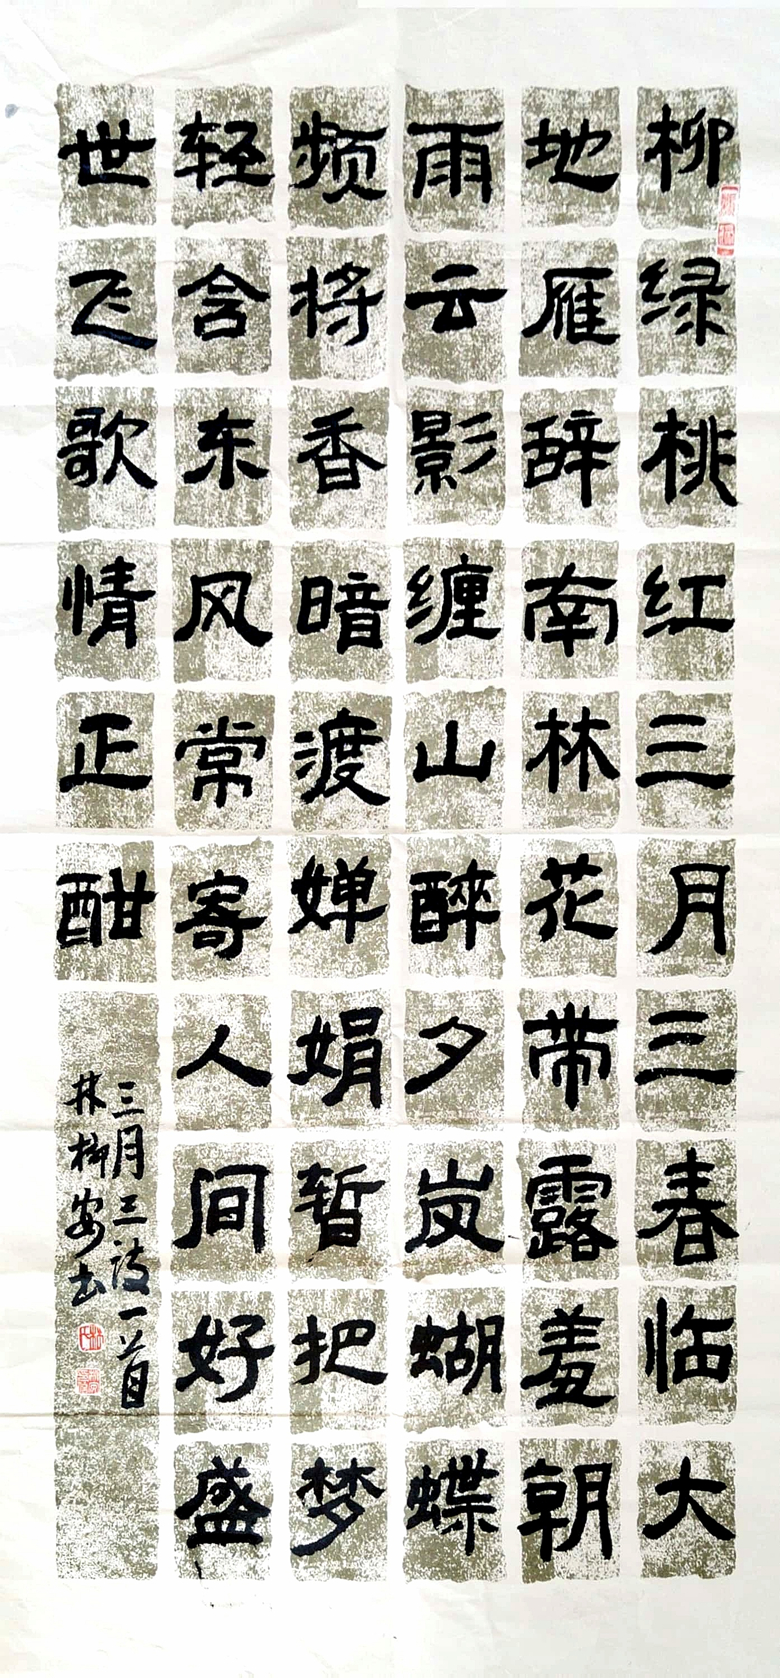 柳绿桃红三月三春临大
地雁辞南林花带露羞朝
雨云影缠山醉夕岚蝴蝶
频将香暗渡婵娟暂把梦
轻含东风常寄人间好盛
世飞歌情正酣
三月三诗一首
林柳安书